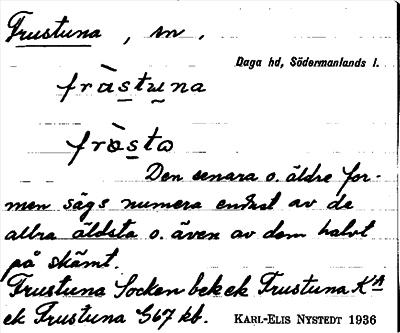 Frustuna, sn,
Daga hd, Södermanlands l.
fràstuna
fràsta
Den senara o. äldre for-
men sägs numera endast av de
allra äldsta o. även av dem halvt
på skämt.
Frustuna Socken bek ek Frustuna KA
ek Frustuna 567 kb.
KARL-ELIS NYSTEDT 1936